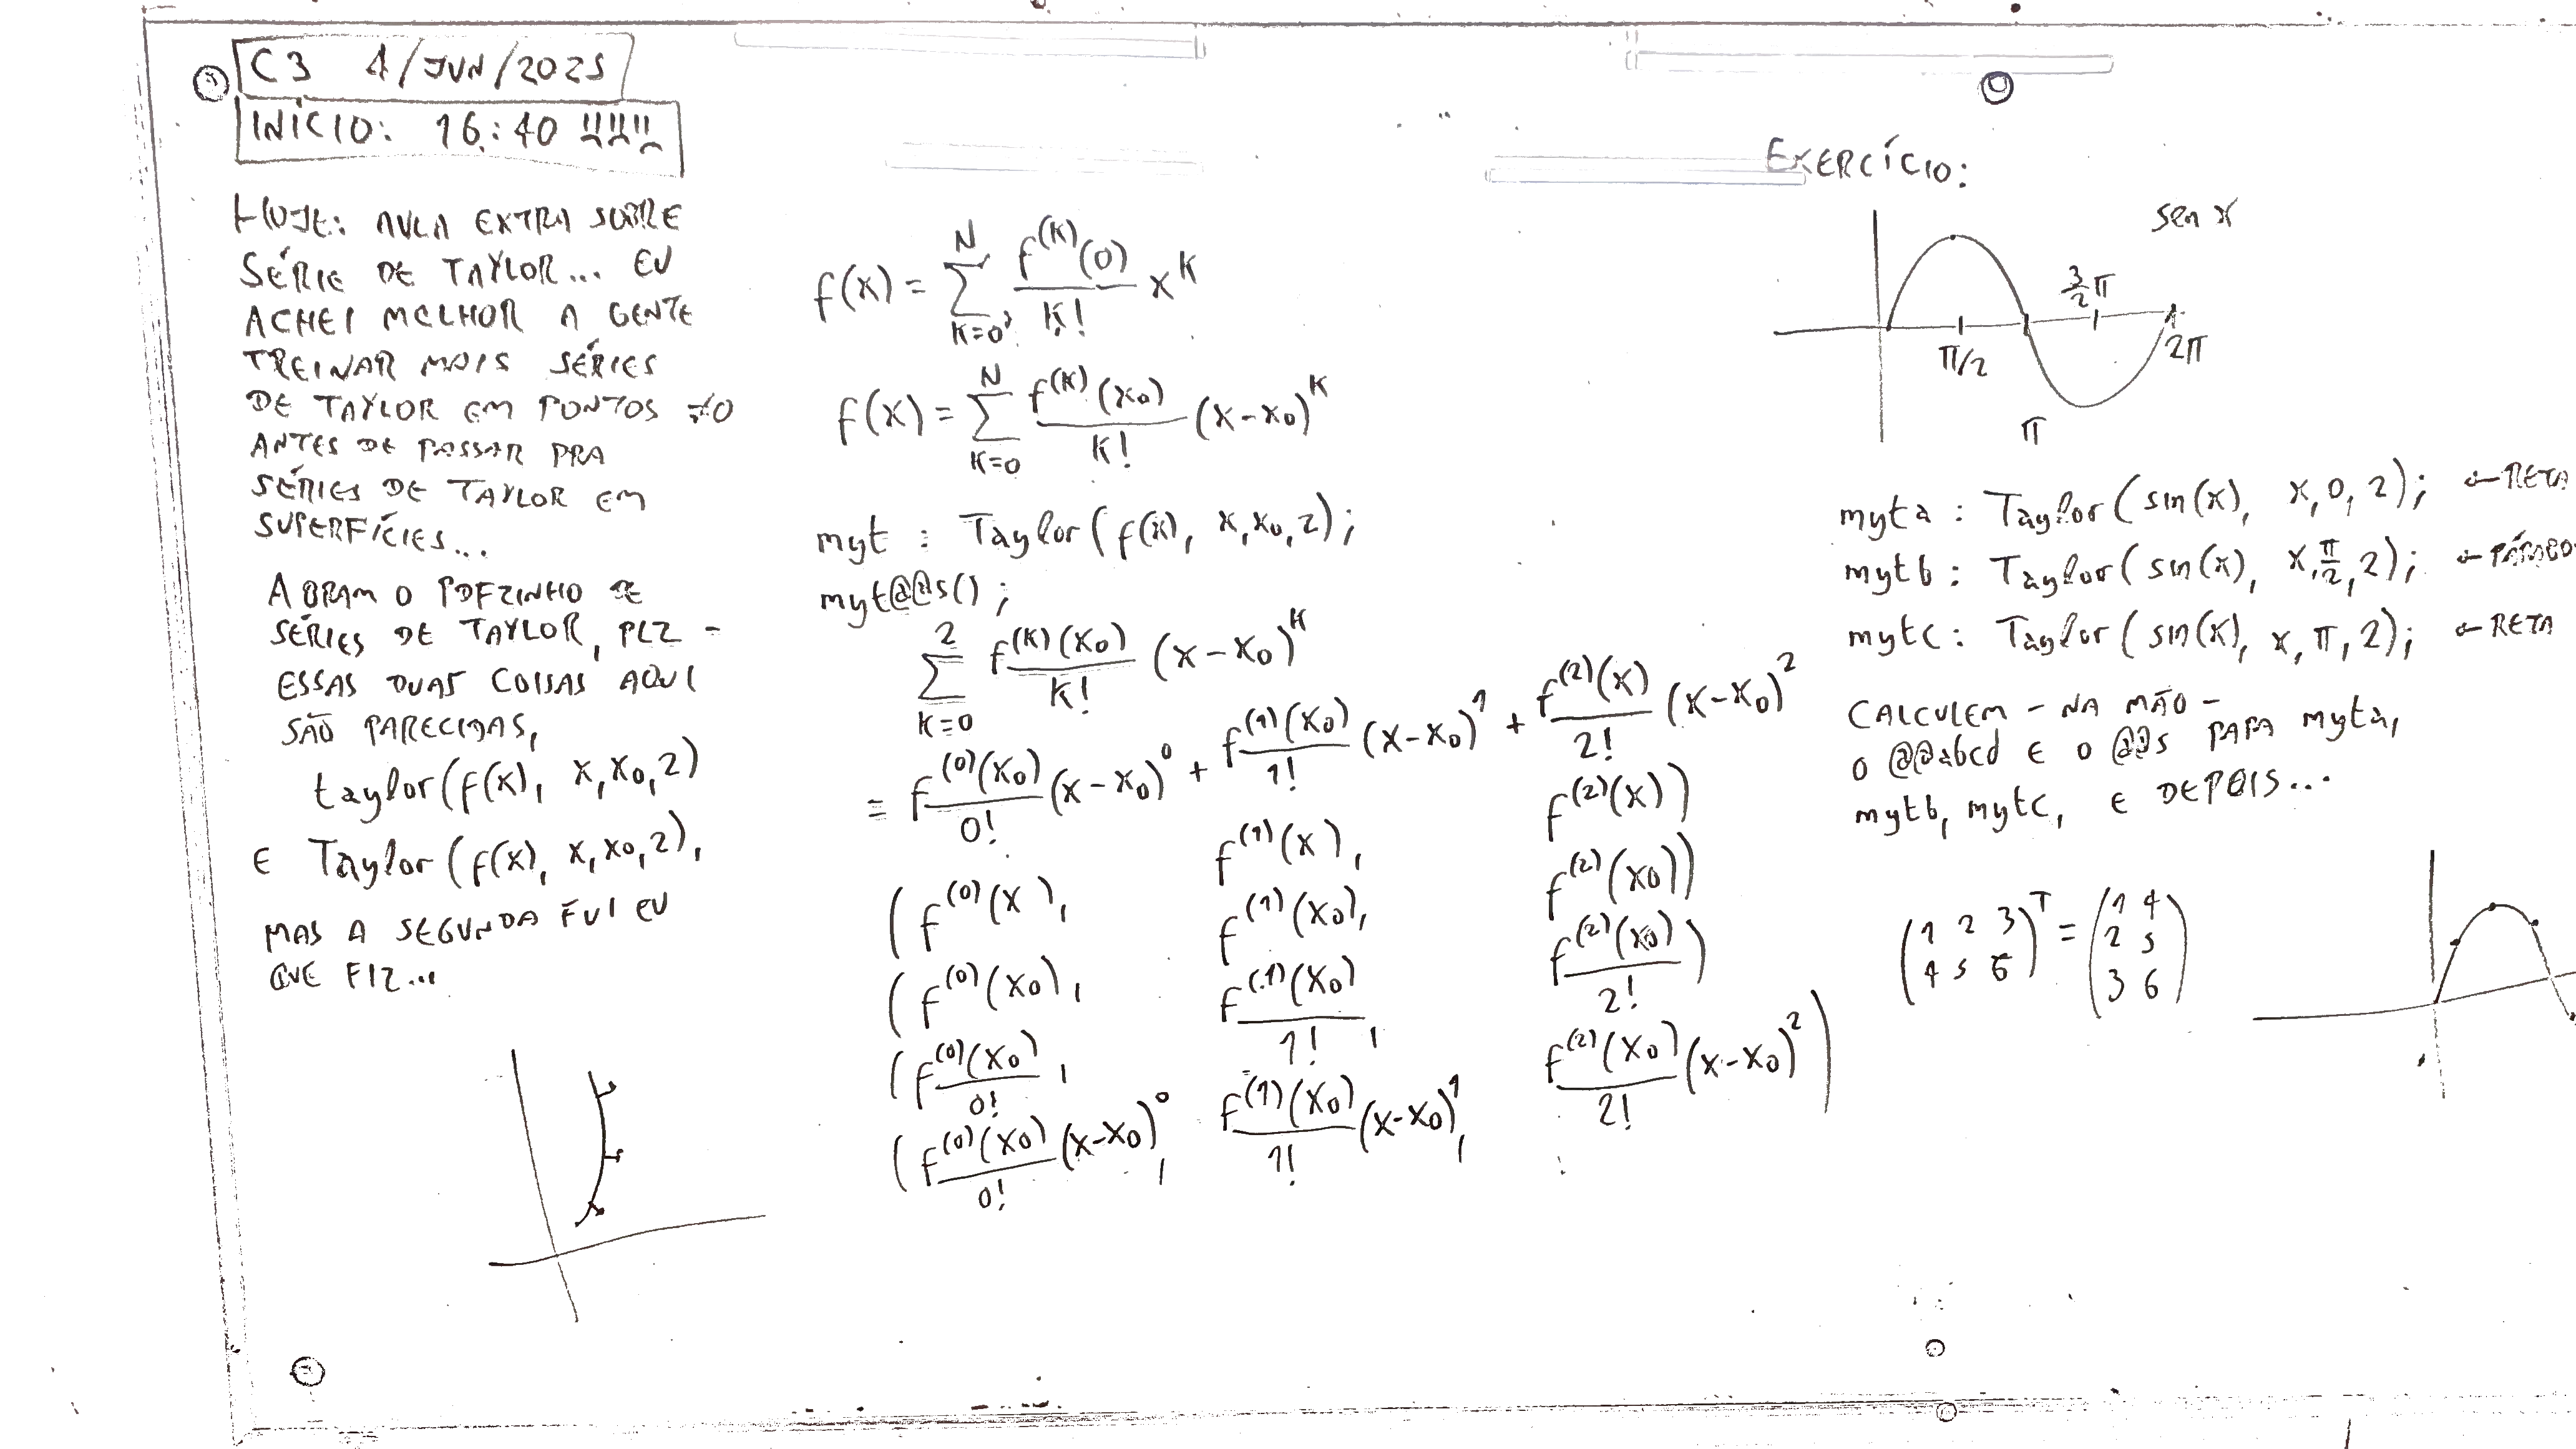 C3 4/JUN/2025
INÍCIO: 16:40 !!!!
HOJE: AULA EXTRA SOBRE
SÉRIE DE TAYLOR... EU
ACHEI MELHOR A GENTE
TREINAR MAIS SÉRIES
DE TAYLOR EM PONTOS ≠0
ANTES DE PASSAR PRA
SÉRIES DE TAYLOR EM
SUPERFÍCIES...
ABRAM O PDFZINHO DE
SÉRIES DE TAYLOR, PLZ –
ESSAS DUAS COISAS AQUI
SÃO PARECIDAS,
taylor(f(x), x, x₀, 2)
E Taylor(f(x), x, x₀, 2),
MAS A SEGUNDA FUI EU
QUE FIZ...
f(x) = ∑_{k=0}^{N} f^{(k)}(0)/k! x^k
f(x) = ∑_{k=0}^{N} f^{(k)}(x₀)/k! (x-x₀)^k
myt : Taylor(f(x), x, x₀, 2);
myt@@s();
∑_{k=0}^{2} f^{(k)}(x₀)/k! (x-x₀)^k
= f^{(0)}(x₀)/0! (x-x₀)^0 + f^{(1)}(x₀)/1! (x-x₀)^1 + f^{(2)}(x)/2! (x-x₀)^2
(f^{(0)}(x), f^{(1)}(x), f^{(2)}(x))
(f^{(0)}(x₀), f^{(1)}(x₀), f^{(2)}(x₀))
(f^{(0)}(x₀)/0!, f^{(1)}(x₀)/1!, f^{(2)}(x₀)/2!)
(f^{(0)}(x₀)/0! (x-x₀)^0, f^{(1)}(x₀)/1! (x-x₀)^1, f^{(2)}(x₀)/2! (x-x₀)^2)
EXERCÍCIO:
sen x
π/2
π
3/2 π
2π
myta : Taylor(sin(x), x, 0, 2); ← RETA
mytb : Taylor(sin(x), x, π/2, 2); ←
mytc : Taylor(sin(x), x, π, 2); ← RETA
CALCULEM – NA MÃO –
O @@abcd E O @@s PARA myta,
mytb, mytc, E DEPOIS...
(1 2 3)^T = (1 4)
(4 5 6) (2 5)
(3 6)